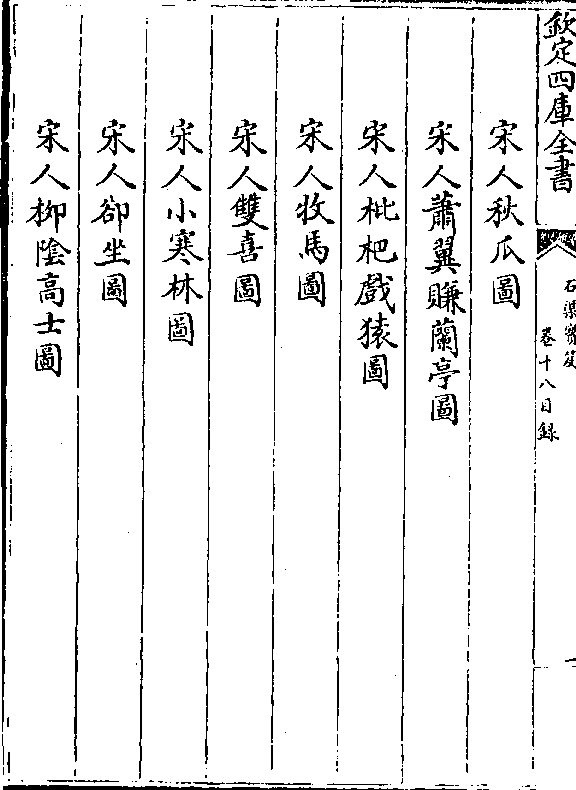 欽定四庫全書
石渠寳笈
卷十八目録
一
宋人秋瓜圖
宋人蕭翼賺蘭亭圖
宋人枇杷戲猿圖
宋人牧馬圖
宋人雙喜圖
宋人小寒林圖
宋人卻坐圖
宋人柳陰高士圖